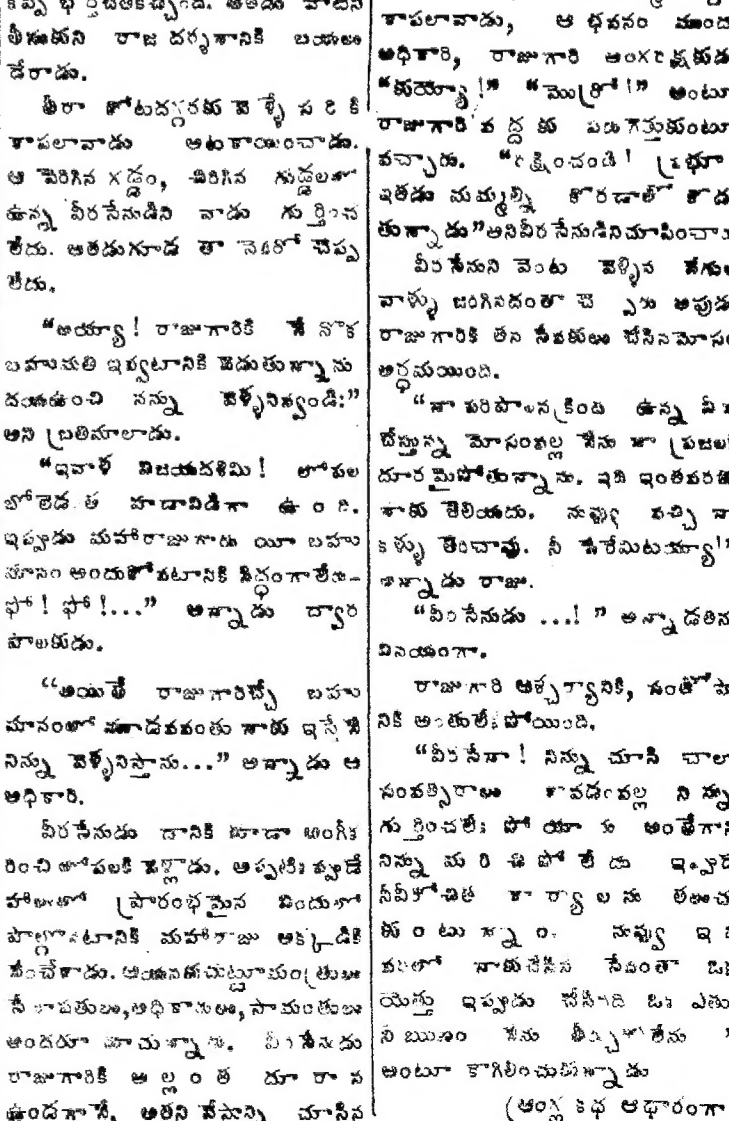 తీసుకుని రాజ దర్శనానికి బయలు
దేరాడు.
తీరా కోటదగ్గరకు వెళ్ళే సరికి
కాపలావాడు అటకాయించాడు.
ఆ పెరిగిన గడ్డం, చిరిగిన గుడ్డలతో
ఉన్న వీరసేనుడిని వాడు గుర్తించ
లేదు. అతడుగూడ తా నెవరో చెప్ప
లేదు.
“అయ్యా! రాజుగారికి నే నొక
బహుమతి ఇవ్వటానికి వెడుతున్నాను
దయఉంచి నన్ను వెళ్ళనివ్వండి:”
అని బ్రతిమాలాడు.
“ఇవాళ విజయదశమి! లోపల
హడావిడిగా ఉంది.
ఇప్పుడు మహారాజుగారు యీ బహు
మానం అందుకోవటానికి సిద్ధంగాలేరు–
ఫో! ఫో!...” అన్నాడు ద్వార
పాలకుడు.
“అయితే రాజుగారిచ్చే బహు
మానంలో మూడవవంతు నాకు ఇస్తేనే
నిన్ను వెళ్ళనిస్తాను...” అన్నాడు ఆ
అధికారి.
వీరసేనుడు దానికి కూడా అంగీక
రించి లోపలకి వెళ్లాడు. అప్పటికప్పుడే
హాలులో ప్రారంభమైన విందులో
పాల్గొనటానికి మహారాజు అక్కడికి
వేంచేశాడు. ఆయనకుచుట్టూమంత్రులు
సేనాపతులు,అధికారులు,సామంతులు
అందరూ కూచున్నారు. వీరసేనుడు
రాజుగారికి అల్లంత దూరాన
ఉండగానే, అతని వేషాన్ని చూసిన
కాపలావాడు, ఆ భవనం ముందు
అధికారి, రాజుగారి అంగరక్షకుడు
“కుయ్యో!” “మొర్రో!” అంటూ
రాజుగారి వద్దకు పరుగెత్తుకుంటూ
వచ్చారు. “రక్షించండి! ప్రభూ
ఇతడు మమ్మల్ని కొరడాతో కొడ
తున్నాడు”అనివీరసేనుడినిచూపించారు
వీరసేనుని వెంట వెళ్ళిన వేగుల
వాళ్ళు జరిగినదంతా అపుడు
రాజుగారికి తన సేవకులు చేసినమోసం
అర్థమయింది.
“నా పరిపాలనక్రింద ఉన్న
చేస్తున్న మోసంవల్ల నేను నా ప్రజలకు
దూరమైపోతున్నాను. ఇది ఇంతవరకు
నాకు తెలియదు. నువ్వు వచ్చి నా
కళ్ళు తెరిచావు. నీ పేరేమిటయ్యా!”
అన్నాడు రాజు.
“వీరసేనుడు ...! ” అన్నాడతను
వినయంగా.
రాజుగారి ఆశ్చర్యానికి, సంతోషా
నికి అంతులేకపోయింది.
“వీరసేనా! నిన్ను చూసి చాలా
సంవత్సరాలు కావడంవల్ల నిన్ను
గుర్తించలేక పోయాను అంతేగాని
నిన్ను మరిచిపోలేదు ఇప్పుడే
నీవీరోచిత కార్యాలను తలుచు
కుంటున్నాం. నువ్వు
నాకుచేసిన సేవంతా ఒక
యెత్తు ఇప్పుడు చేసినది ఒక ఎత్తు
నీ ఋణం నేను తీర్చుకోలేను ”
అంటూ కాగిలించుకున్నాడు
(ఆంగ్ల కధ ఆధారంగా